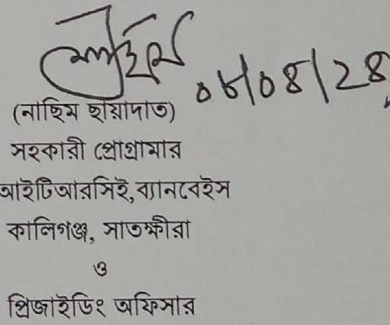 ০৮|০৪|২৪
(নাছিম ছায়াদাত)
সহকারী প্রোগ্রামার
আইটিআরসিই,ব্যানবেইস
কালিগঞ্জ, সাতক্ষীরা
ও
প্রিজাইডিং অফিসার